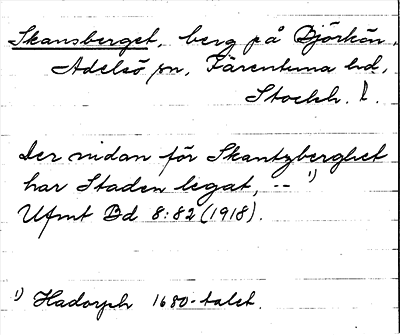 Skansberget, berg på Björkön,
Adelsö sn, Färentuna hd,
Stockh. l.
Der nidan för Skantzberghet
har Staden legat, -- ¹)
Ufmt Bd 8:82 (1918).
¹) Hadorph 1680-talet.